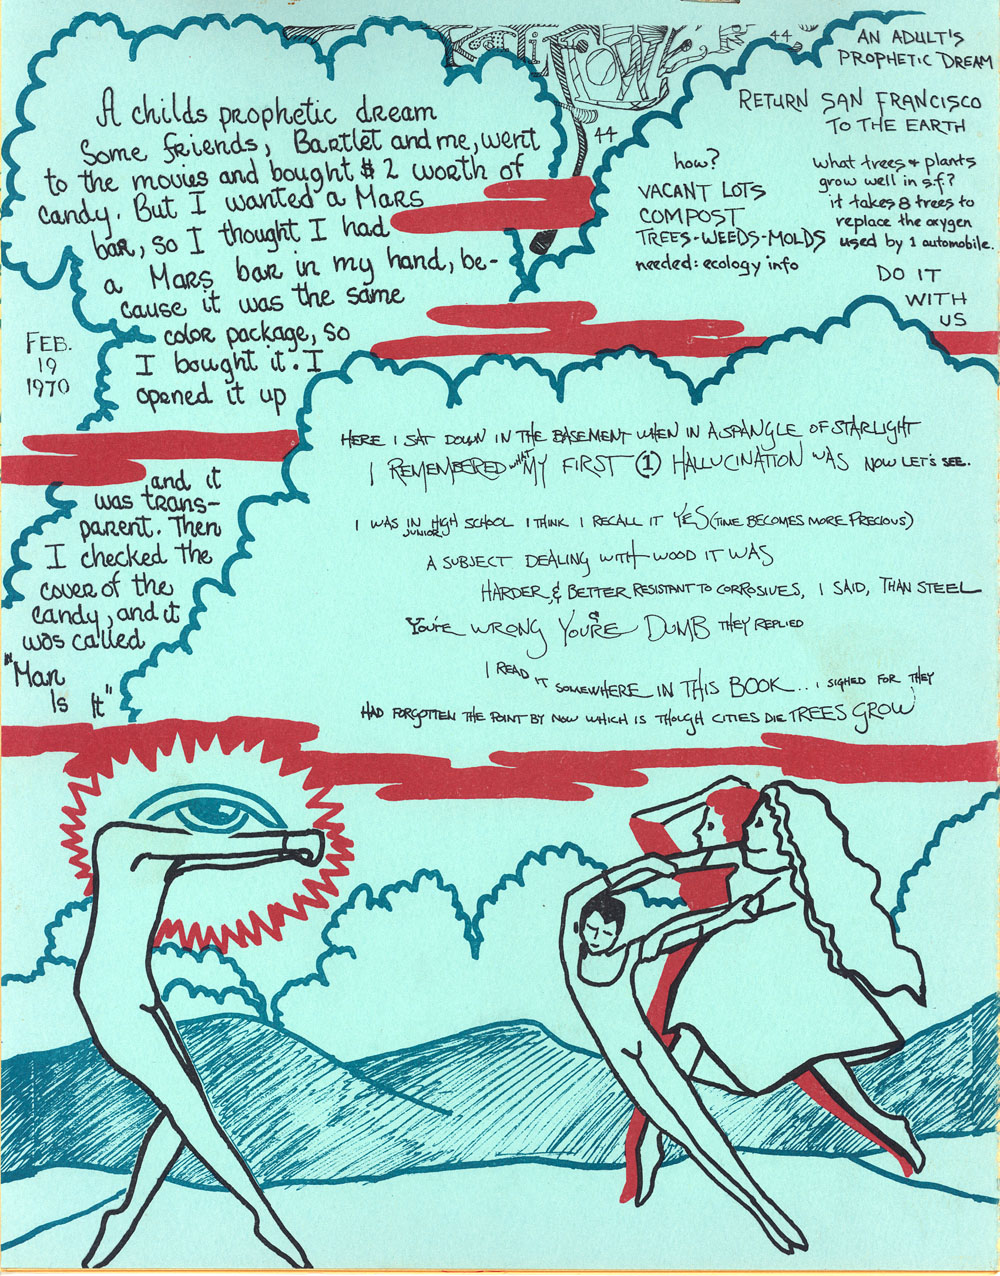 A childs prophetic dream
Some friends, Bartlet and me, went
to the movies and bought $2 worth of
candy. But I wanted a Mars
bar, so I thought I had
a Mars bar in my hand, be-
cause it was the same
color package, so
I bought it. I
opened it up
and it
was trans-
parent. Then
I checked the
cover of the
candy, and it
was called
"Man
Is It"
FEB.
19
1970
44
44
AN ADULT'S
PROPHETIC DREAM
RETURN SAN FRANCISCO
TO THE EARTH
how?
VACANT LOTS
COMPOST
TREES-WEEDS-MOLDS
needed: ecology info
what trees + plants
grow well in s.f.?
it takes 8 trees to
replace the oxygen
used by 1 automobile.
DO IT
WITH
US
HERE I SAT DOWN IN THE BASEMENT WHEN IN A SPANGLE OF STARLIGHT
I REMEMBERED WHAT MY FIRST 1 HALLUCINATION WAS NOW LET'S SEE.
I WAS IN JUNIOR HIGH SCHOOL I THINK I RECALL IT YES (TIME BECOMES MORE PRECIOUS)
A SUBJECT DEALING WITH WOOD IT WAS
HARDER & BETTER RESISTANT TO CORROSIVES, I SAID, THAN STEEL
YOU'RE WRONG & YOU'RE DUMB THEY REPLIED
I READ IT SOMEWHERE IN THIS BOOK... I SIGHED FOR THEY
HAD FORGOTTEN THE POINT BY NOW WHICH IS THOUGH CITIES DIE TREES GROW